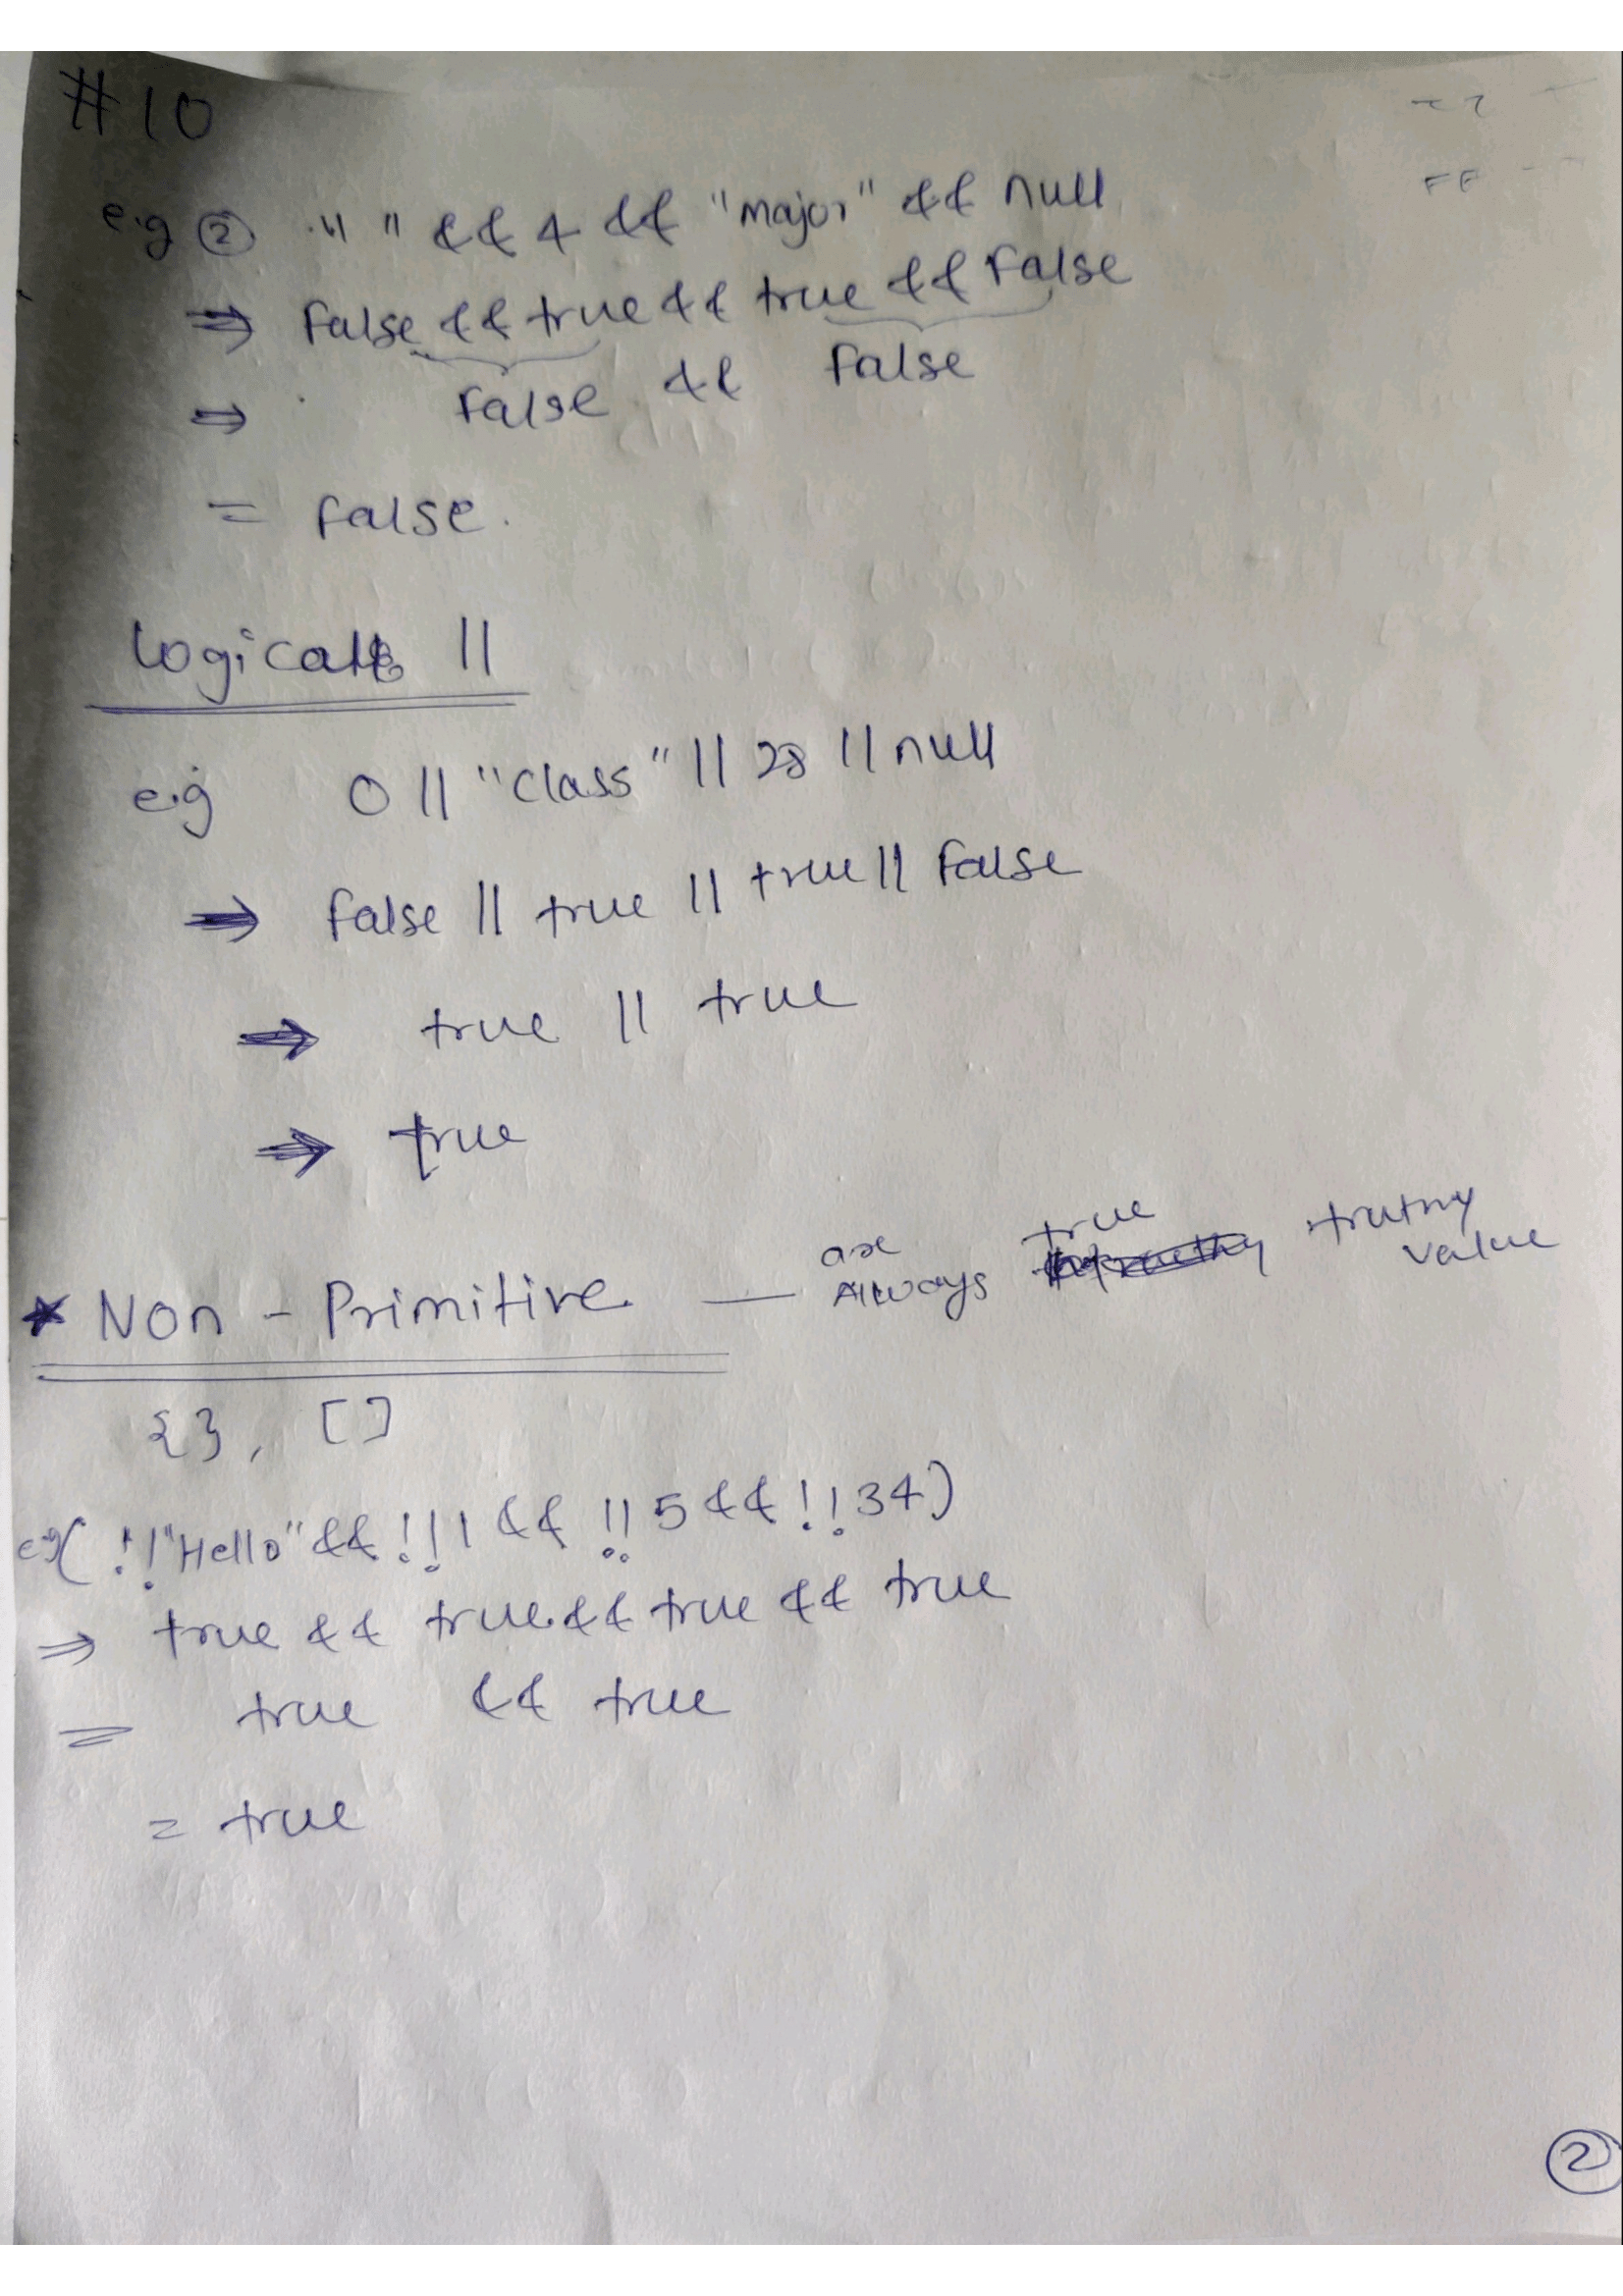 #10
e.g ② " " && 4 && "major" && null
⇒ false && true && true && false
⇒ false && false
= false.
|| 
e.g 0 || "class" || 28 || null
⇒ false || true || true || false
⇒ true || true
⇒ true
* Non - Primitive — are Always true truthy value
{}, []
eg( !!"Hello" && !!1 && !!5 && !!34)
⇒ true && true && true && true
= true && true
= true
②